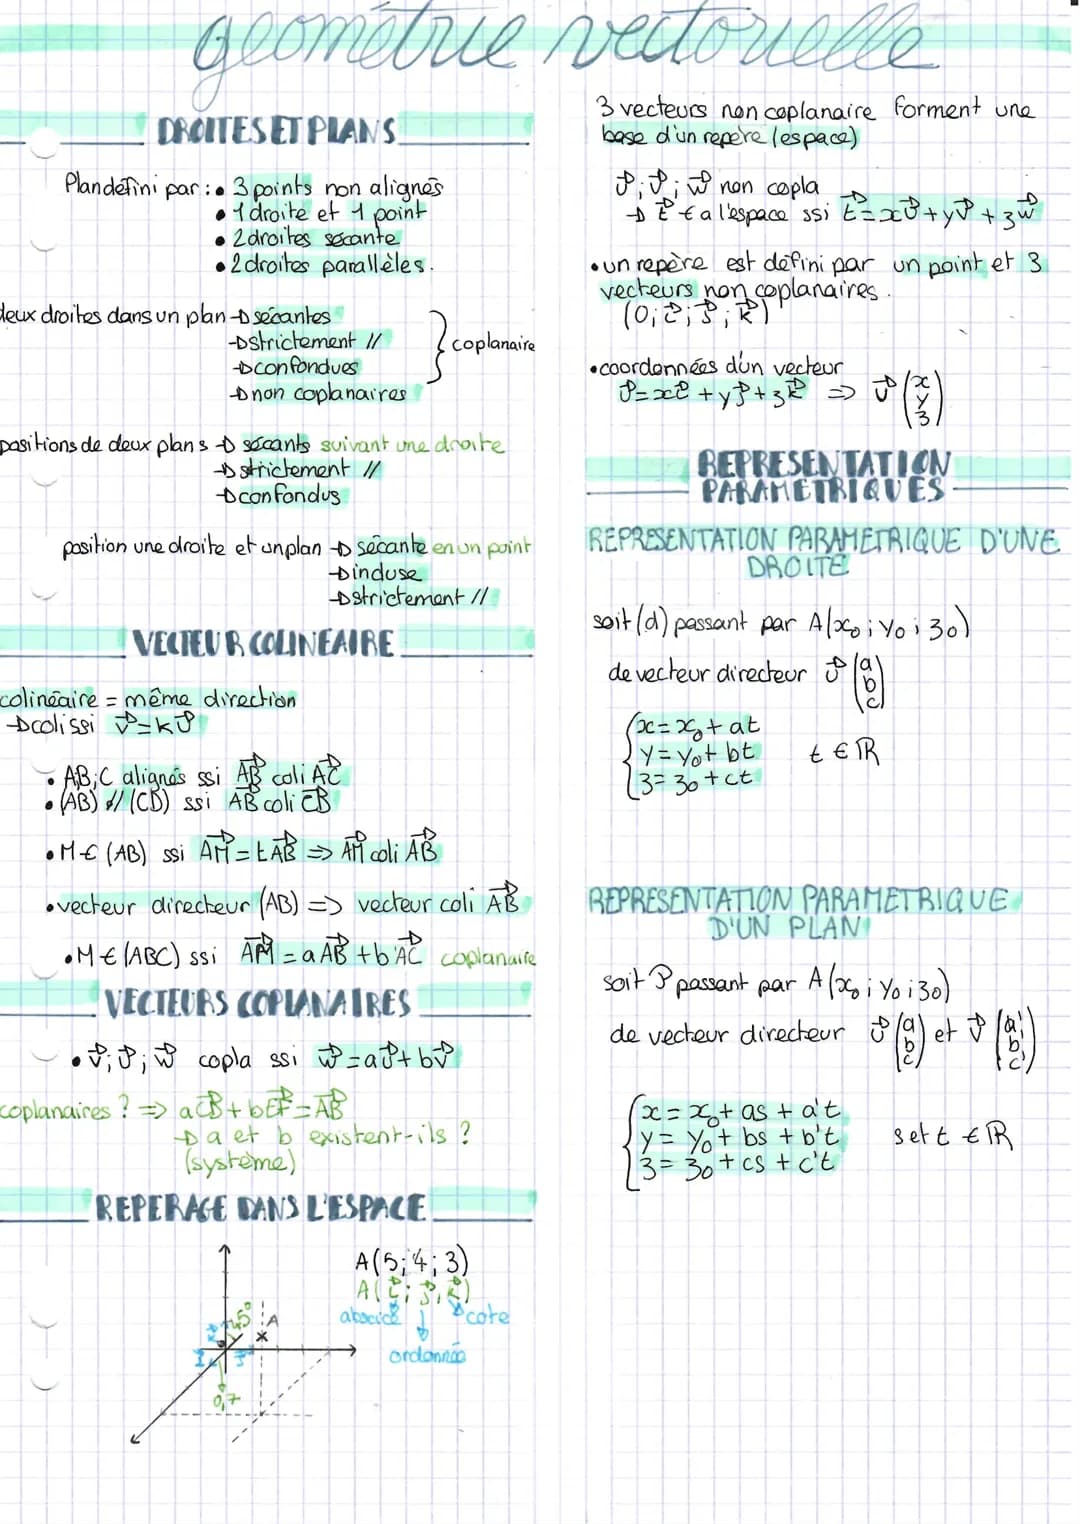 géométrie vectorielle
DROITES ET PLANS
Plan défini par : • 3 points non alignés
• 1 droite et 1 point
• 2 droites sécante
• 2 droites parallèles.
deux droites dans un plan → sécantes
→ strictement //
→ confondues
→ non coplanaires
coplanaire
positions de deux plans → sécants suivant une droite
→ strictement //
→ confondus
position une droite et un plan → sécante en un point
→ incluse
→ strictement //
VECTEUR COLINEAIRE
colinéaire = même direction
→ coli ssi v⃗ = k u⃗
• A,B,C alignés ssi AB⃗ coli AC⃗
• (AB) // (CD) ssi AB⃗ coli CD⃗
• M ∈ (AB) ssi AM⃗ = t AB⃗ => AM⃗ coli AB⃗
• vecteur directeur (AB) => vecteur coli AB⃗
• M ∈ (ABC) ssi AM⃗ = a AB⃗ + b AC⃗ coplanaire
VECTEURS COPLANAIRES
• v⃗ ; u⃗ ; w⃗ copla ssi w⃗ = a u⃗ + b v⃗
coplanaires ? => a CD⃗ + b EF⃗ = AB⃗
→ a et b existent-ils ?
(système)
REPERAGE DANS L'ESPACE
A(5; 4; 3)
A(i⃗; j⃗; k⃗)
abscice
cote
ordonnée
45°
A
k
i
j
0,7
3 vecteurs non coplanaire forment une
base d'un repère (espace)
u⃗ ; v⃗ ; w⃗ non copla
→ t⃗ ∈ a l'espace ssi t⃗ = x u⃗ + y v⃗ + z w⃗
• un repère est défini par un point et 3
vecteurs non coplanaires.
(0; i⃗; j⃗; k⃗)
• coordonnées d'un vecteur
u⃗ = x i⃗ + y j⃗ + z k⃗ => v⃗ (x
y
z)
REPRESENTATION
PARAMETRIQUES
REPRESENTATION PARAMETRIQUE D'UNE
DROITE
soit (d) passant par A(x₀; y₀; z₀)
de vecteur directeur u⃗ (a
b
c)
x = x₀ + at
y = y₀ + bt t ∈ ℝ
z = z₀ + ct
REPRESENTATION PARAMETRIQUE
D'UN PLAN
soit P passant par A(x₀; y₀; z₀)
de vecteur directeur u⃗ (a b c) et v⃗ (a' b' c')
x = x₀ + as + a't
y = y₀ + bs + b't s et t ∈ ℝ
z = z₀ + cs + c't